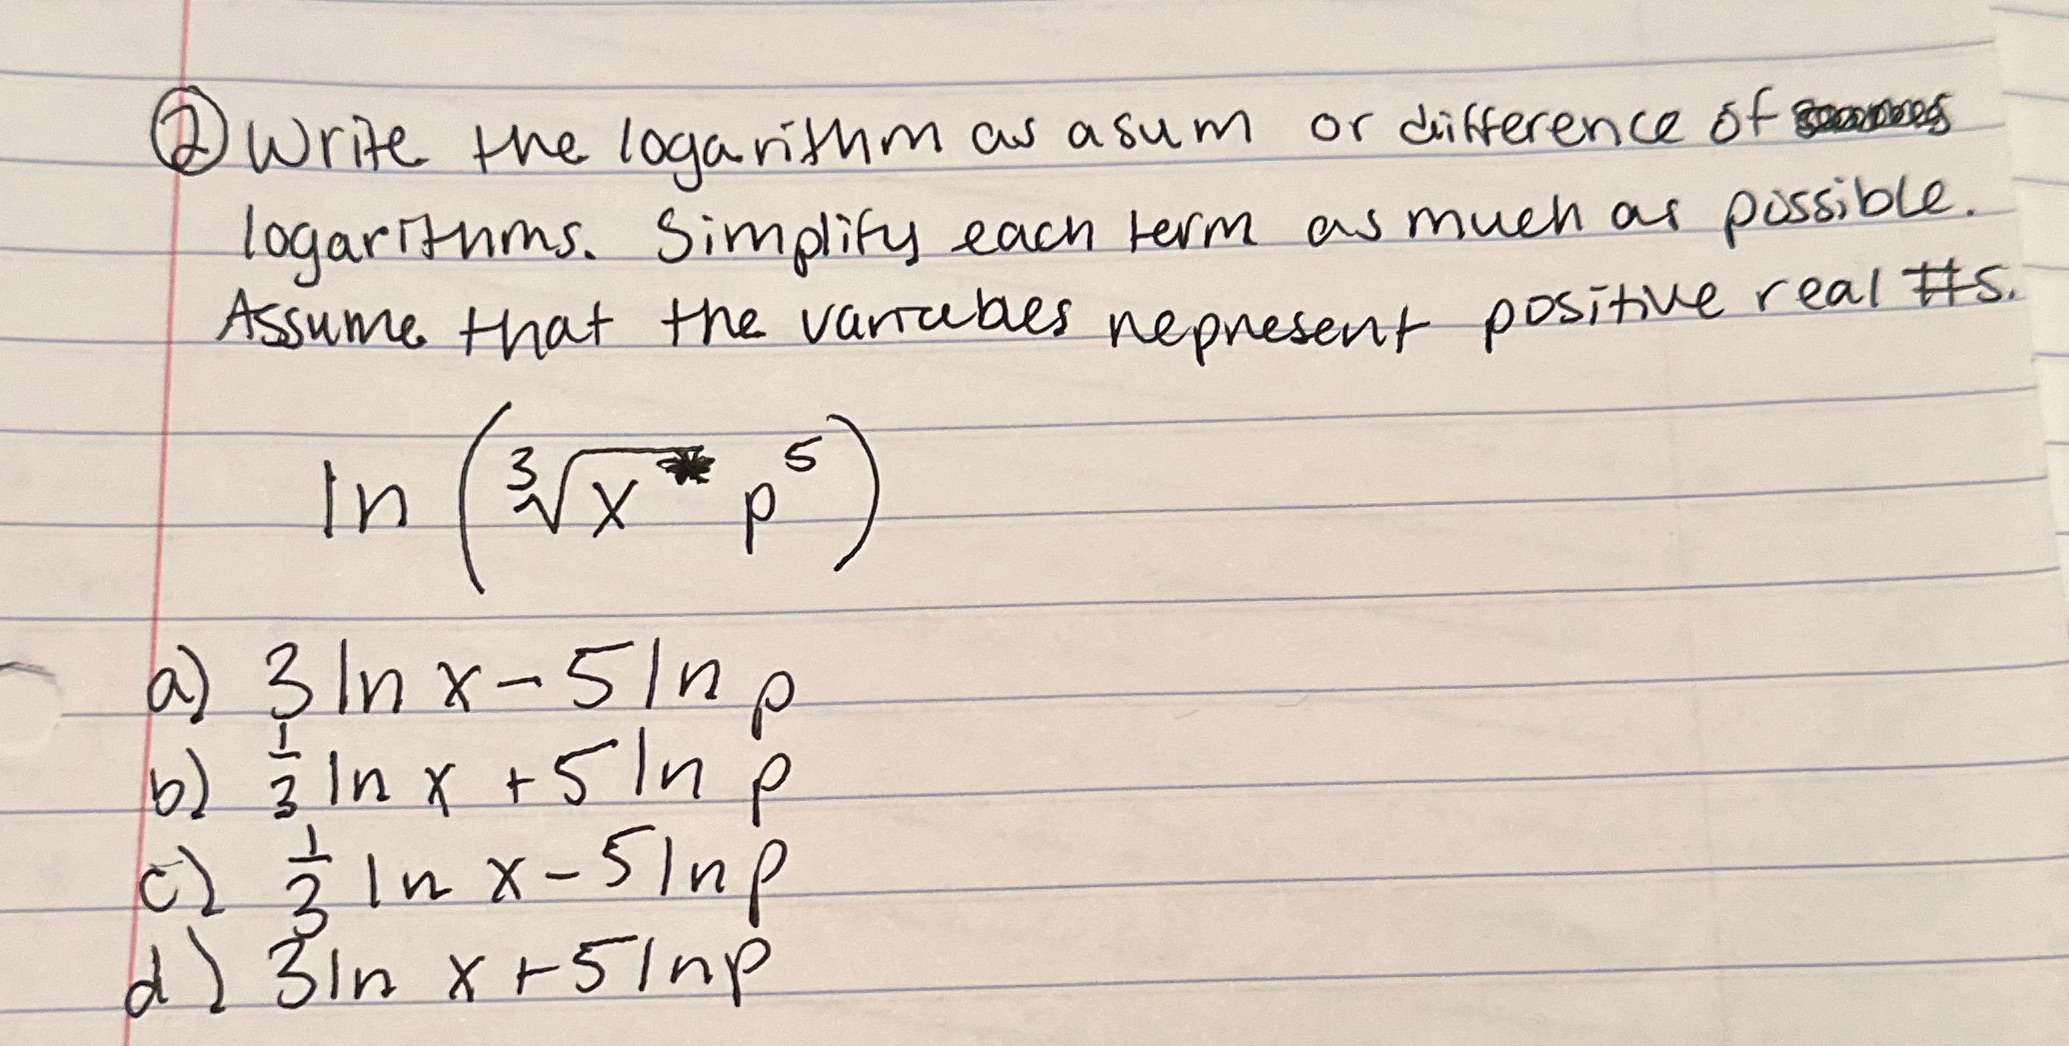 ② Write the logarithm as a sum or difference of
logarithms. Simplify each term as much as possible.
Assume that the variables represent positive real #s.
ln (∛x p⁵)
a) 3 ln x - 5 ln p
b) 1/3 ln x + 5 ln p
c) 1/3 ln x - 5 ln p
d) 3 ln x + 5 ln p